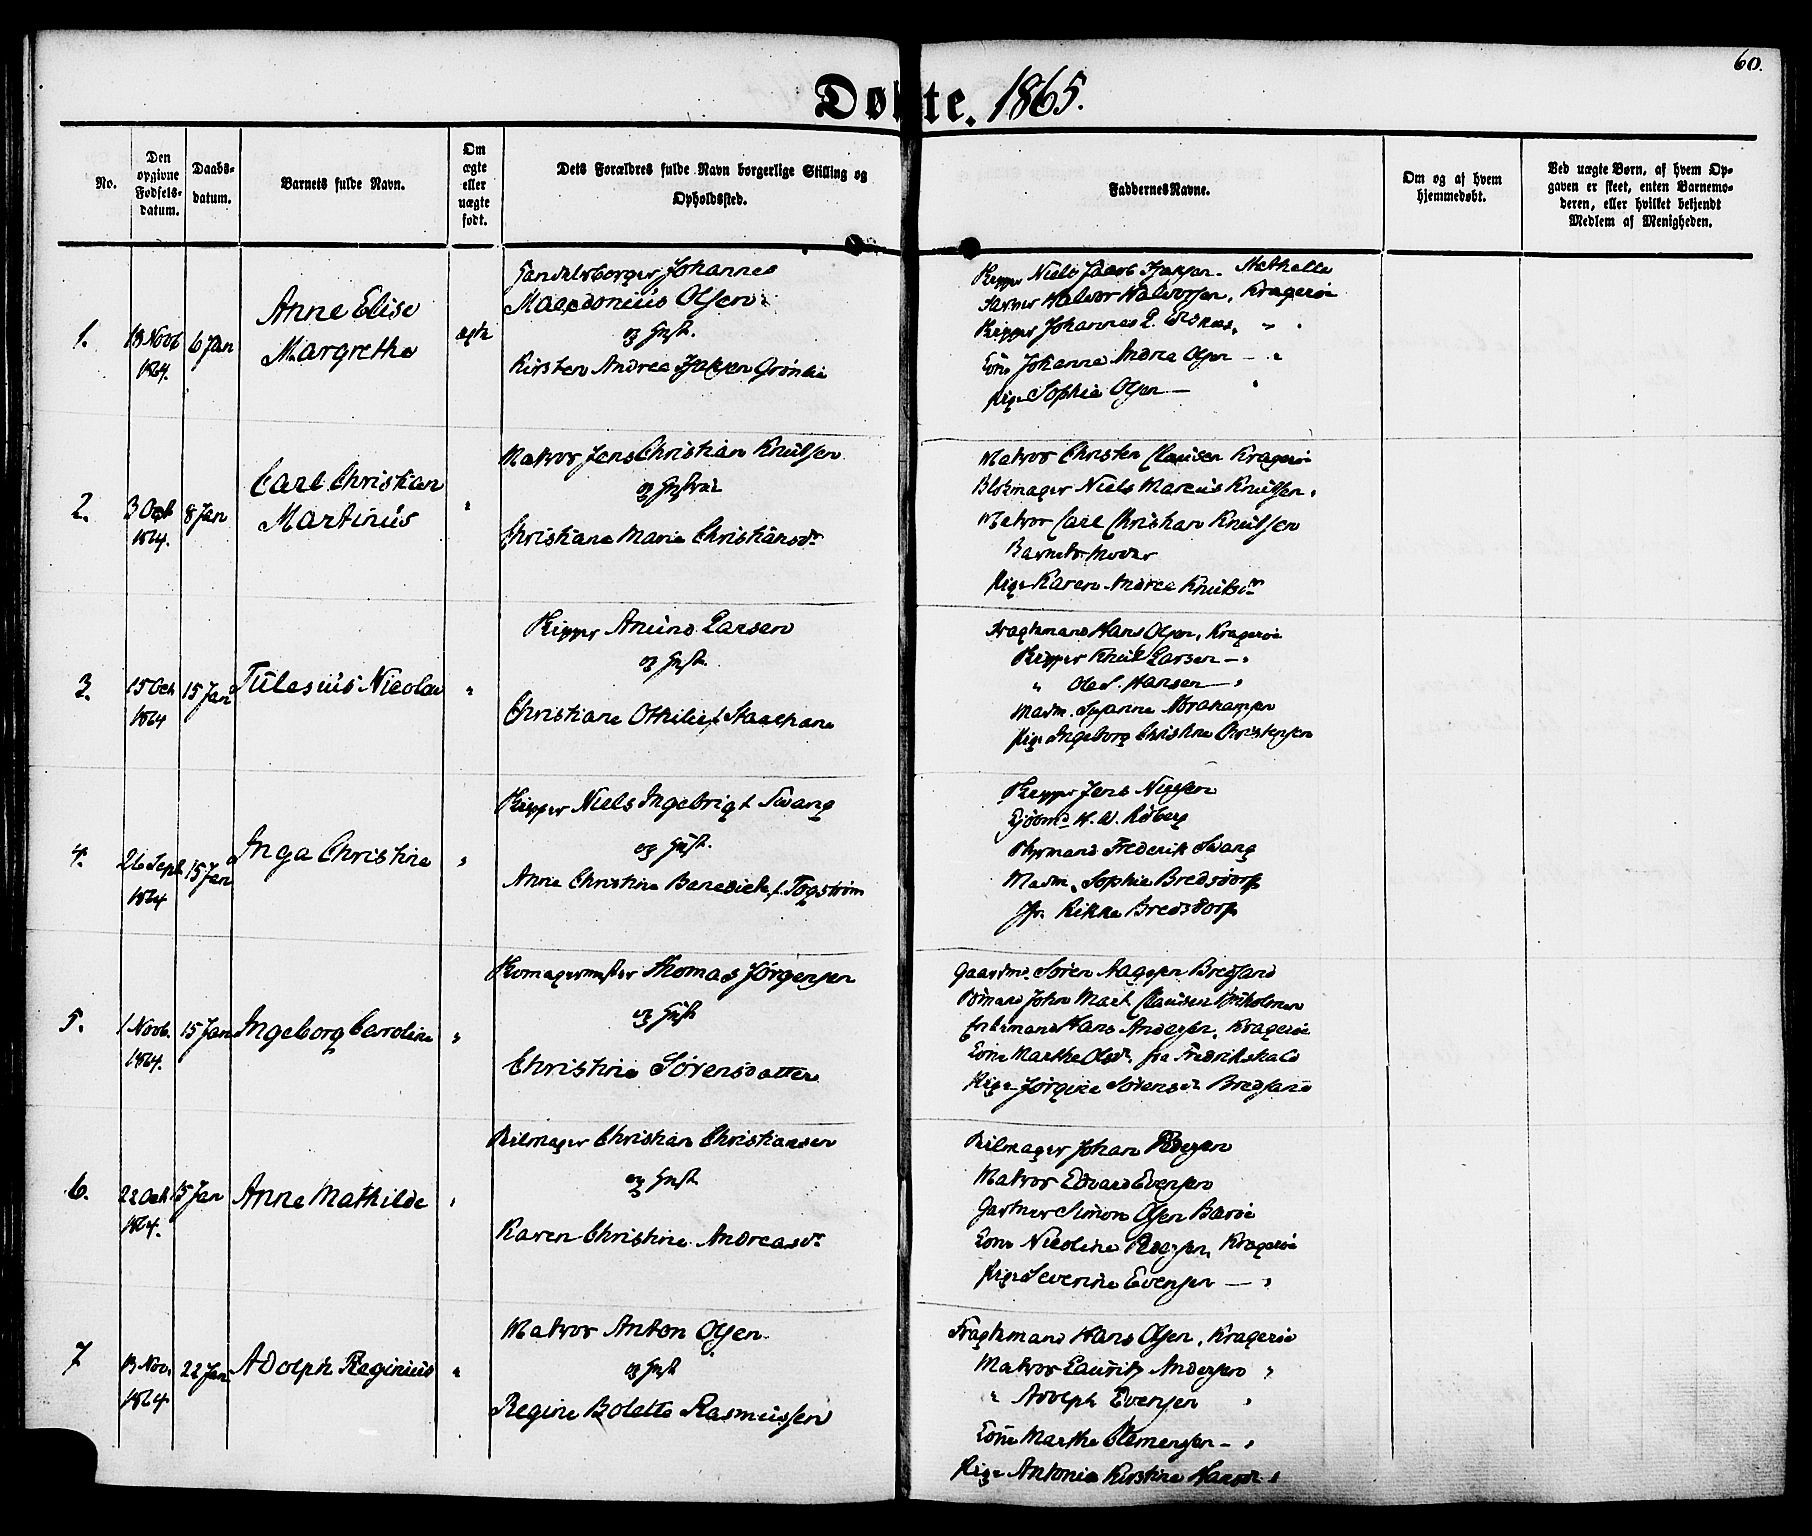 60.
Døbte. 1865.
No.
Den opgivne Fødsels-datum.
Daabs-datum.
Barnets fulde Navn.
Om ægte eller uægte født.
Dets Forældres fulde Navn borgerlige Stilling og Opholdssted.
Faddernes Navne.
Om og af hvem hjemmedøbt.
Ved uægte Børn, af hvem Op-
gaven er skeet, enten Barnemo-
deren, eller hvilket bekjendt
Medlem af Menigheden.
1.
18 Novb 1864.
6 Jan
Anne Elise
Margrethe
ægte
Handelsborger Johannes
Macedonius Olsen
og Hust.
Kirsten Andrea Grønlie
Skipper Niels Jacob
Halvor Halvorsen, Kragerøe
Skipper Johannes " "
Kone Johanne Andrea Olsen — "
Pige Sophie Olsen — "
2.
3 Oct 1864.
8 Jan
Carl Christian
Martinus
"
Matros Jens Christian Knutsen
og Hustrue
Christiane Marie Christiansdr
Matros Christen Clausen Kragerøe
Blokmager Niels Marcus Knutsen "
Matros Carl Christian Knutsen
Barnets Moder
Pige Karen Andrea Knutsdr
3.
15 Oct 1864
15 Jan
Nicolai
"
Skipper Amund Larsen
og Hust.
Christiane Othilie f. Staalhane
Fragtmand Hans Olsen, Kragerøe
Skipper Knut Larsen — "
" Ole S. Hansen — "
Madm. Susanne Abrahamsen
Pige Ingeborg Christine Christensen
4.
26 Sept 1864
15 Jan
Inga Christine
"
Skipper Niels Ingebrigt Svang
og Hust.
Anne Christine Benedicte f. Togstrøm
Skipper Jens
H. W.
Styrmand Frederik Svang
Madm. Sophie Bredsdorff
Jfr. Rikke Bredsdorff
5.
1 Novb. 1864.
15 Jan
Ingeborg Caroline
"
Skomagermester Thomas Jørgensen
og Hust
Christine Sørensdatter
Gaardm. Søren Aagesen Bredsand
John Clausen
Hans Andersen, Kragerøe
Kone Marthe Olsdr. fra Fredrikshald
Pige Jørgine Sørensdr Bredsand
6.
22 Oct 1864.
15 Jan
Anne Mathilde
"
Seilmager Christian Christiansen
og Hust
Karen Christine Andreasdr
Seilmager Johan Pedersen
Matros Edvard Evensen
Gartner Simon Olsen Barøe
Kone Nicoline Pedersen, Kragerøe
Pige Severine Evensen — "
7
13 Nov. 1864
22 Jan
Adolph Reginius
"
Matros Anton Olsen
og Hust
Regine Bolette Rasmussen
Fragtmand Hans Olsen, Kragerøe
Matros Lauritz Andersen "
" Adolph Evensen "
Kone Marthe Clemensen — "
Pige Antonie Kirstine Hansdr "